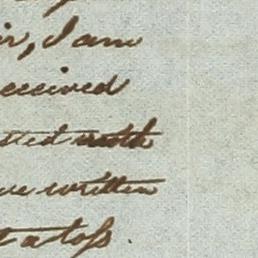 ir, I am
eceived
tted with
ve written
t a loss.